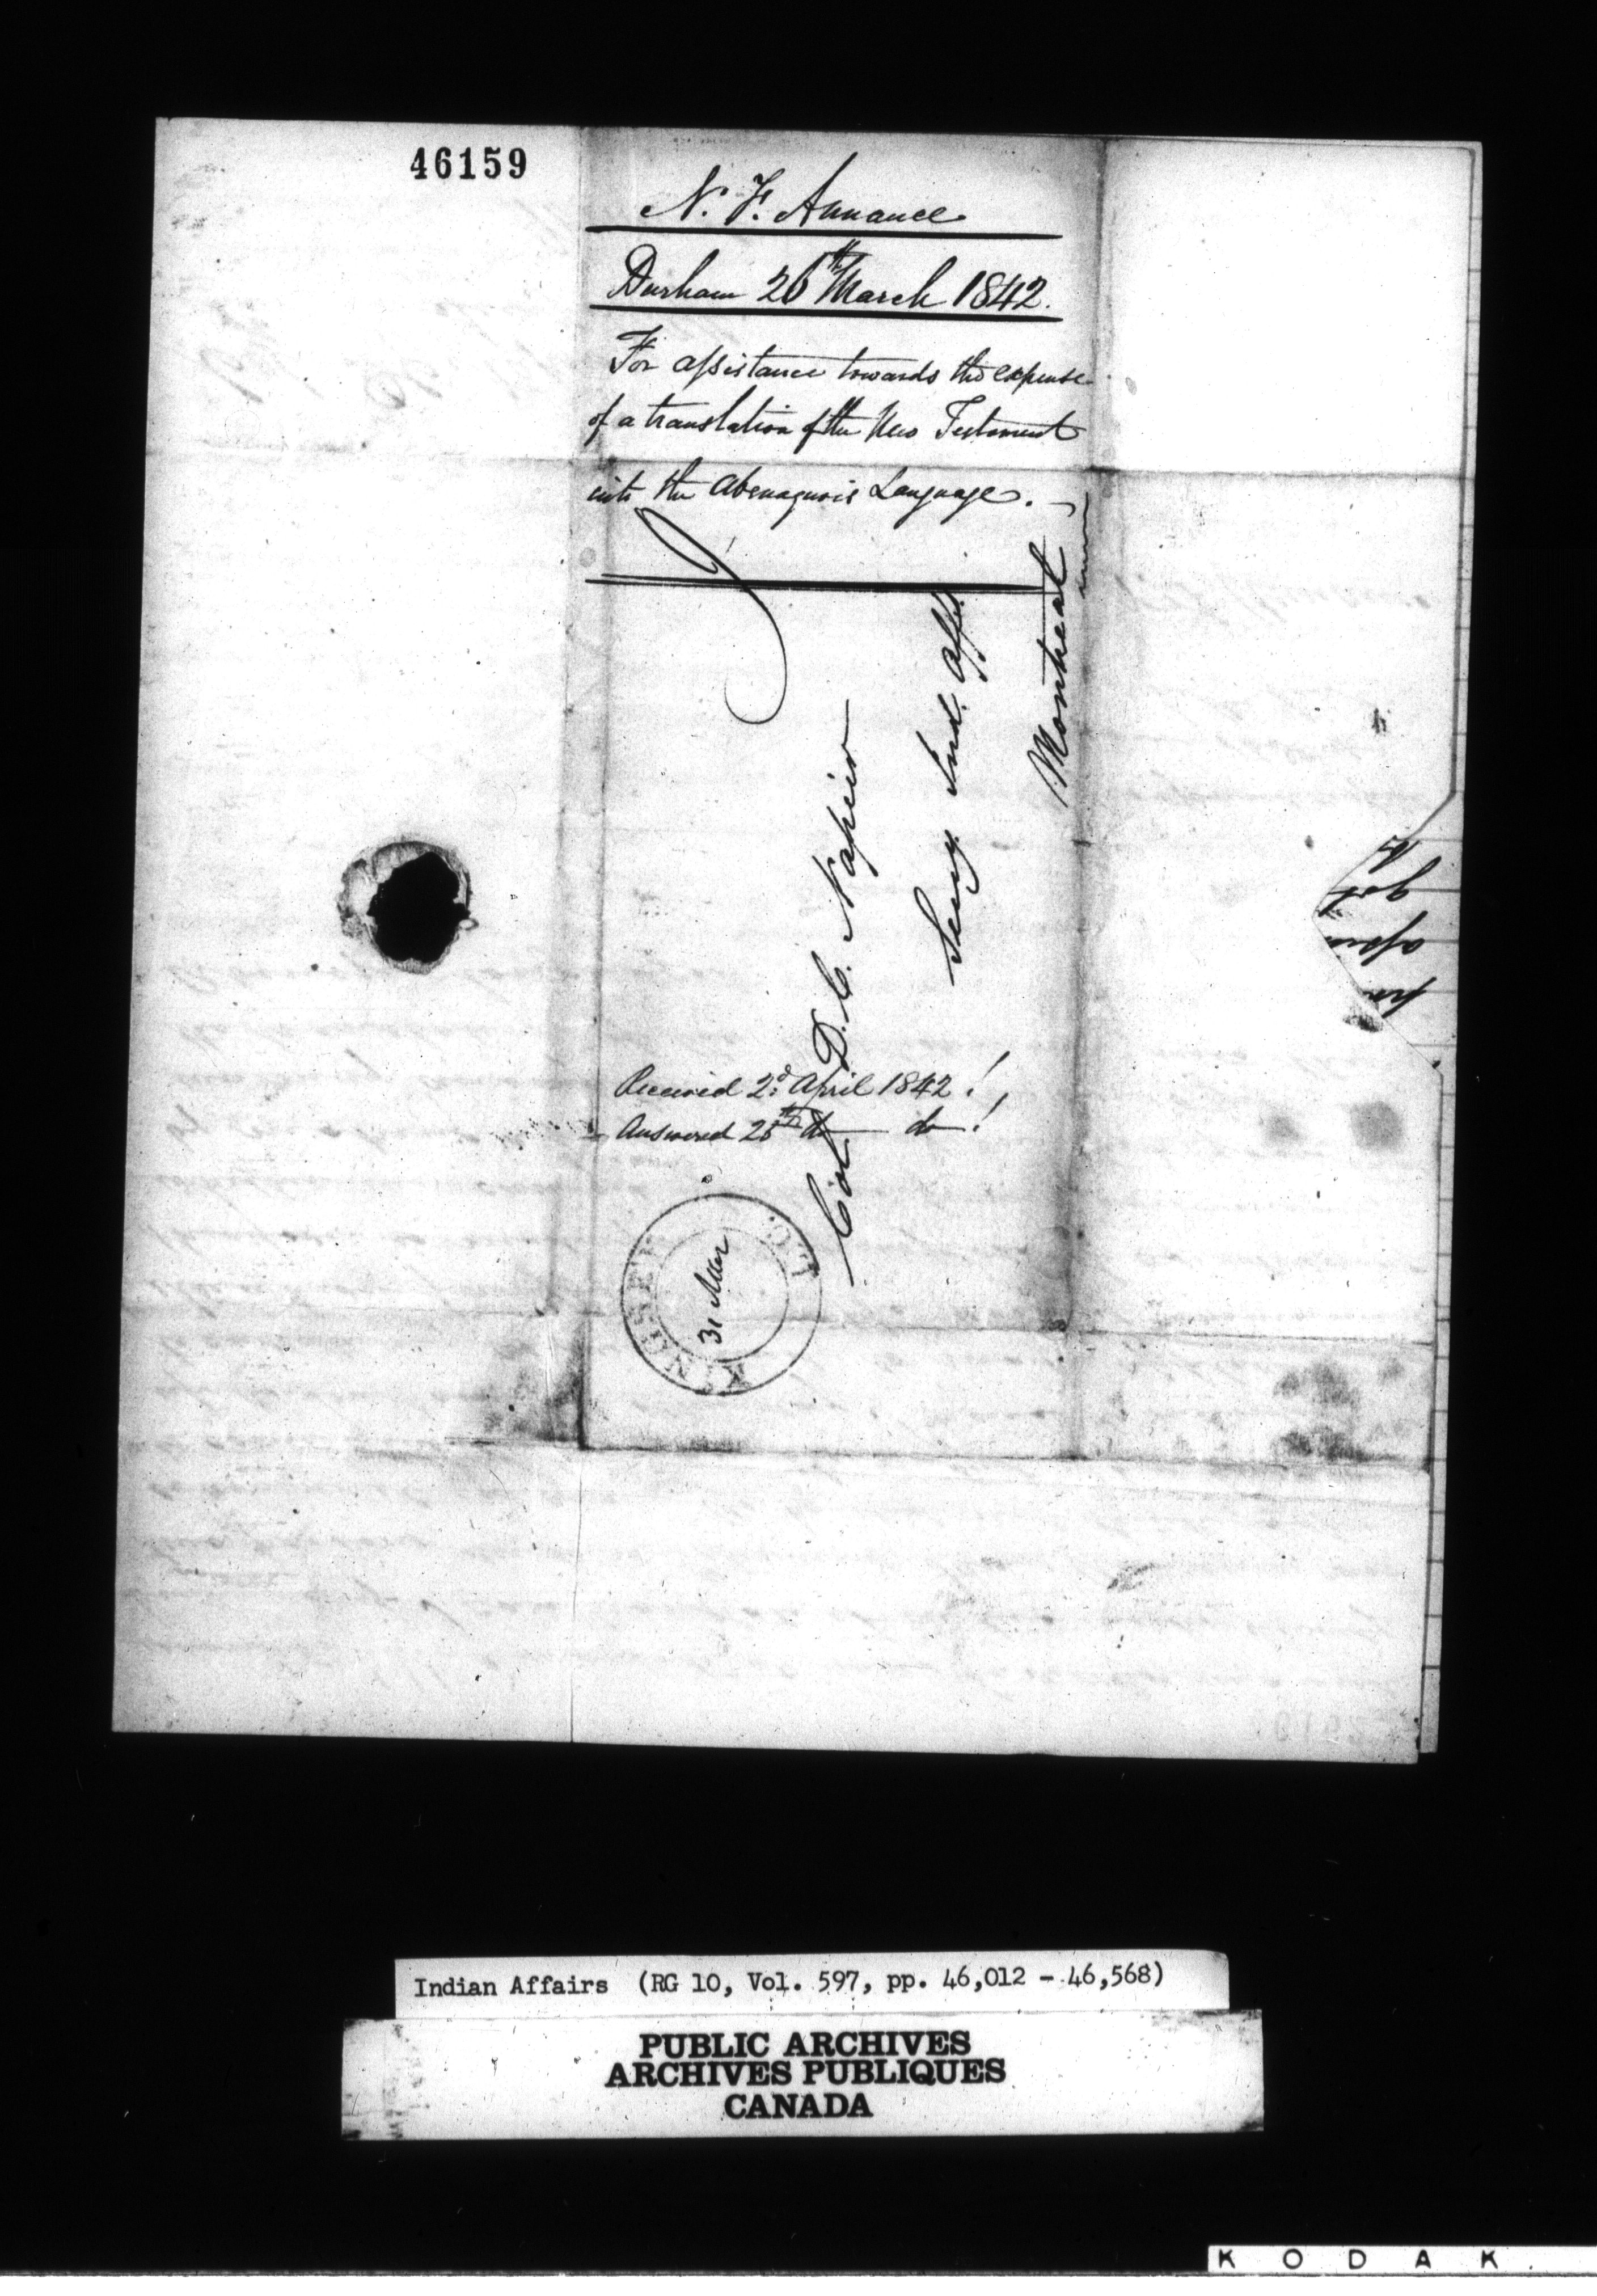 46159
N. F. Annance
Durham 26th March 1842.
For assistance towards the expense
of a translation of the New Testament
into the Abenaquois Language.
Col. D. C. Napier
Secy Ind. Affs.
Montreal
Received 2d. April 1842
Answered 25th do do
KINGSEY L.C.
31 Mar
Indian Affairs (RG 10, Vol. 597, pp. 46,012 - 46,568)
PUBLIC ARCHIVES
ARCHIVES PUBLIQUES
CANADA
KODAK